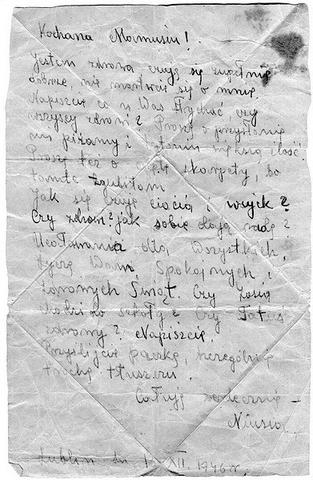 Kochana Mamusiu!
Jestem zdrowa, czuję się zupełnie
dobrze, nie martw się o mnie.
Napiszcie co u Was słychać czy
wszyscy zdrowi? Proszę o przysłanie
mi piżamy i większą ilość
Proszę też o skarpety, bo
tamte zgubiłam
Jak się czuje ciocia, wujek?
Czy zdrowi? Jak sobie dają radę?
Ucałowania dla Wszystkich,
życzę Wam Spokojnych i
Świąt. Czy Zosia
chodzi do szkoły? Czy Tatuś
zdrowy? Napiszcie.
Przyślijcie paczkę, szczególnie
trochę tłuszczu.
Całuję serdecznie
Niusia
Lublin dn. XII. 1946r.